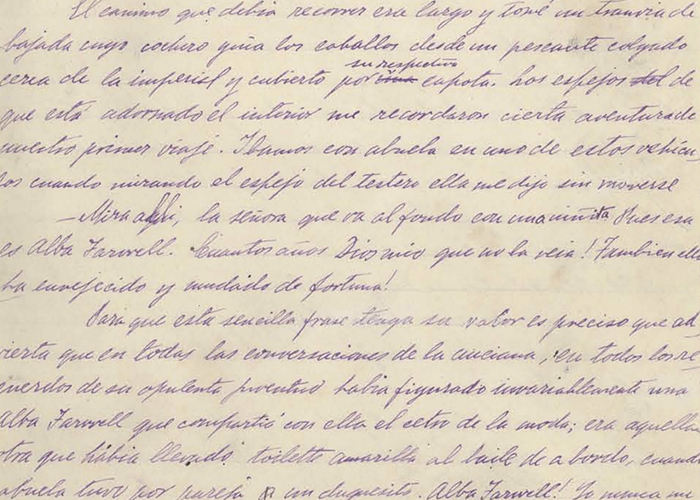 El camino que debía recorrer era largo y tomé un tranvía de
bajada cuyo cochero guía los caballos desde un pescante colgado
su respectivo
cerca de la imperial y cubierto por capota. Los espejos de
que está adornado el interior me recordaron cierta aventura de
nuestro primer viaje. Ibamos con abuela en uno de estos vehícu
los cuando mirando el espejo del testero ella me dijo sin moverse
— Mira alli, la señora que va al fondo con una niñita Pues esa
es Alba Farwell. Cuantos años Dios mio que no la veia! Tambien ella
ha envejecido y mudado de fortuna!
Para que esta sencilla frase tenga su valor es preciso que ad
vierta que en todas las conversaciones de la anciana, en todos los re
cuerdos de su opulenta juventud habia figurado invariablemente una
Alba Farwell que compartió con ella el cetro de la moda; era aquella
otra que había llevado toilette amarilla al baile de a bordo, cuando
abuela tuvo por pareja a un duquesito. Alba Farwell! Yo nunca me